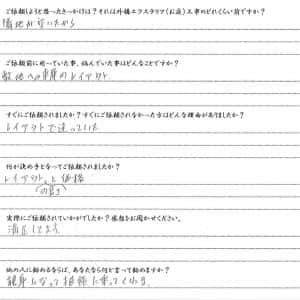 ご依頼しようと思ったきっかけは？それは外構エクステリア（お庭）工事のどれくらい前ですか？
隣地が空いたから
ご依頼前に思っていた事、悩んでいた事はどんなことですか？
敷地への車庫のレイアウト
すぐにご依頼されましたか？すぐにご依頼されなかった方はどんな理由がありましたか？
レイアウトで迷っていた
何が決め手となってご依頼されましたか？
レイアウトと価格
の良さ
実際にご依頼されていかがでしたか？感想をお聞かせください。
満足してます
他の人に勧めるならば、あなたなら何と言って勧めますか？
親身になって相談に乗ってくれる。